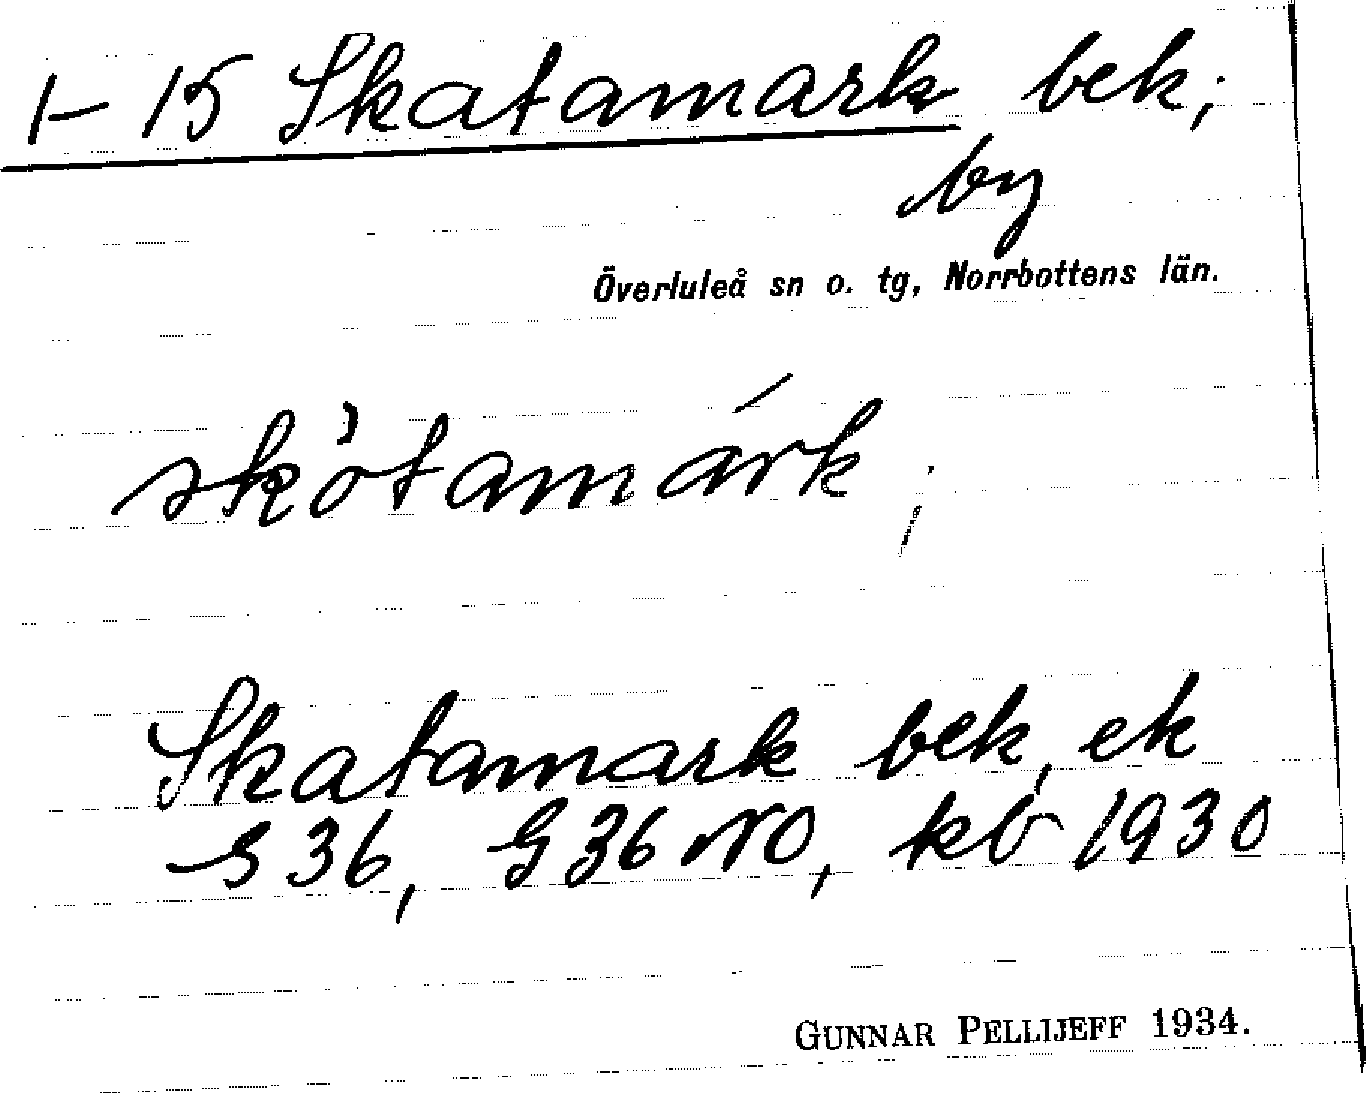 1-15 Skatamark bek;
by
Överluleå sn o. tg, Norrbottens län.
skòtamárk;
Skatamark bek, ek
S 36, G36 NO, kb 1930
GUNNAR PELLIJEFF 1934.